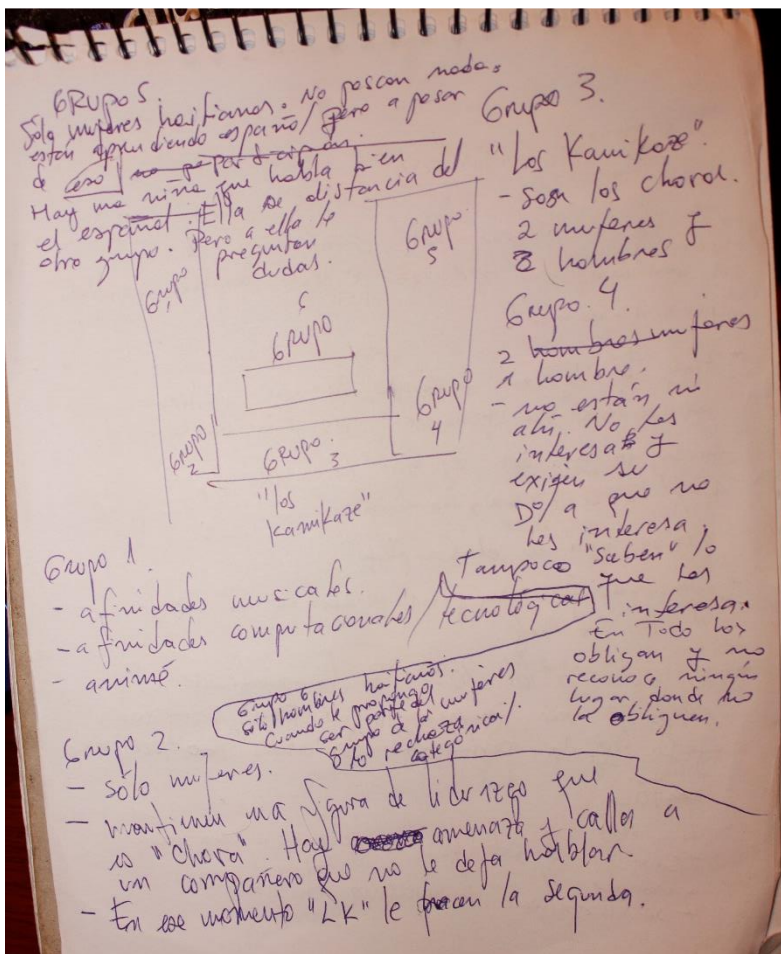 GRUPO 5.
Sólo mujeres haitianas. No poscan nada.
están aprendiendo español/ pero a pesar
de eso no participan.
Hay una niña que habla bien
el español. Ella se distancia del
otro grupo. Pero a ella le
preguntan
dudas.
Grupo 3.
"Los Kamikaze".
- Son los choros.
2 mujeres y
2 hombres
Grupo. 4
2 hombres mujeres
1 hombre.
- no están ni
ahí. No les
interesa y
exigen su
Dº/ a que no
les interesa.
Tampoco "saben" lo
que les
interesa.
En Todo los
obligan y no
reconoce ningún
lugar donde no
le obliguen.
Grupo
Grupo
2
GRUPO
6
GRUPO.
3
"los
Kamikaze"
Grupo
5
Grupo
4
Grupo 1.
- afinidades musicales.
- afinidades computacionales/ tecnológicas
- animé.
Grupo 6
sólo hombres haitianos.
Cuando le propongo
ser parte del
grupo de las mujeres
lo rechaza
categórica/.
Grupo 2.
- Sólo mujeres.
- mantienen una figura de liderazgo que
es "chora". Hay amenaza y calla a
un compañero que no le deja hablar
- En ese momento "LK" le hacen la segunda.